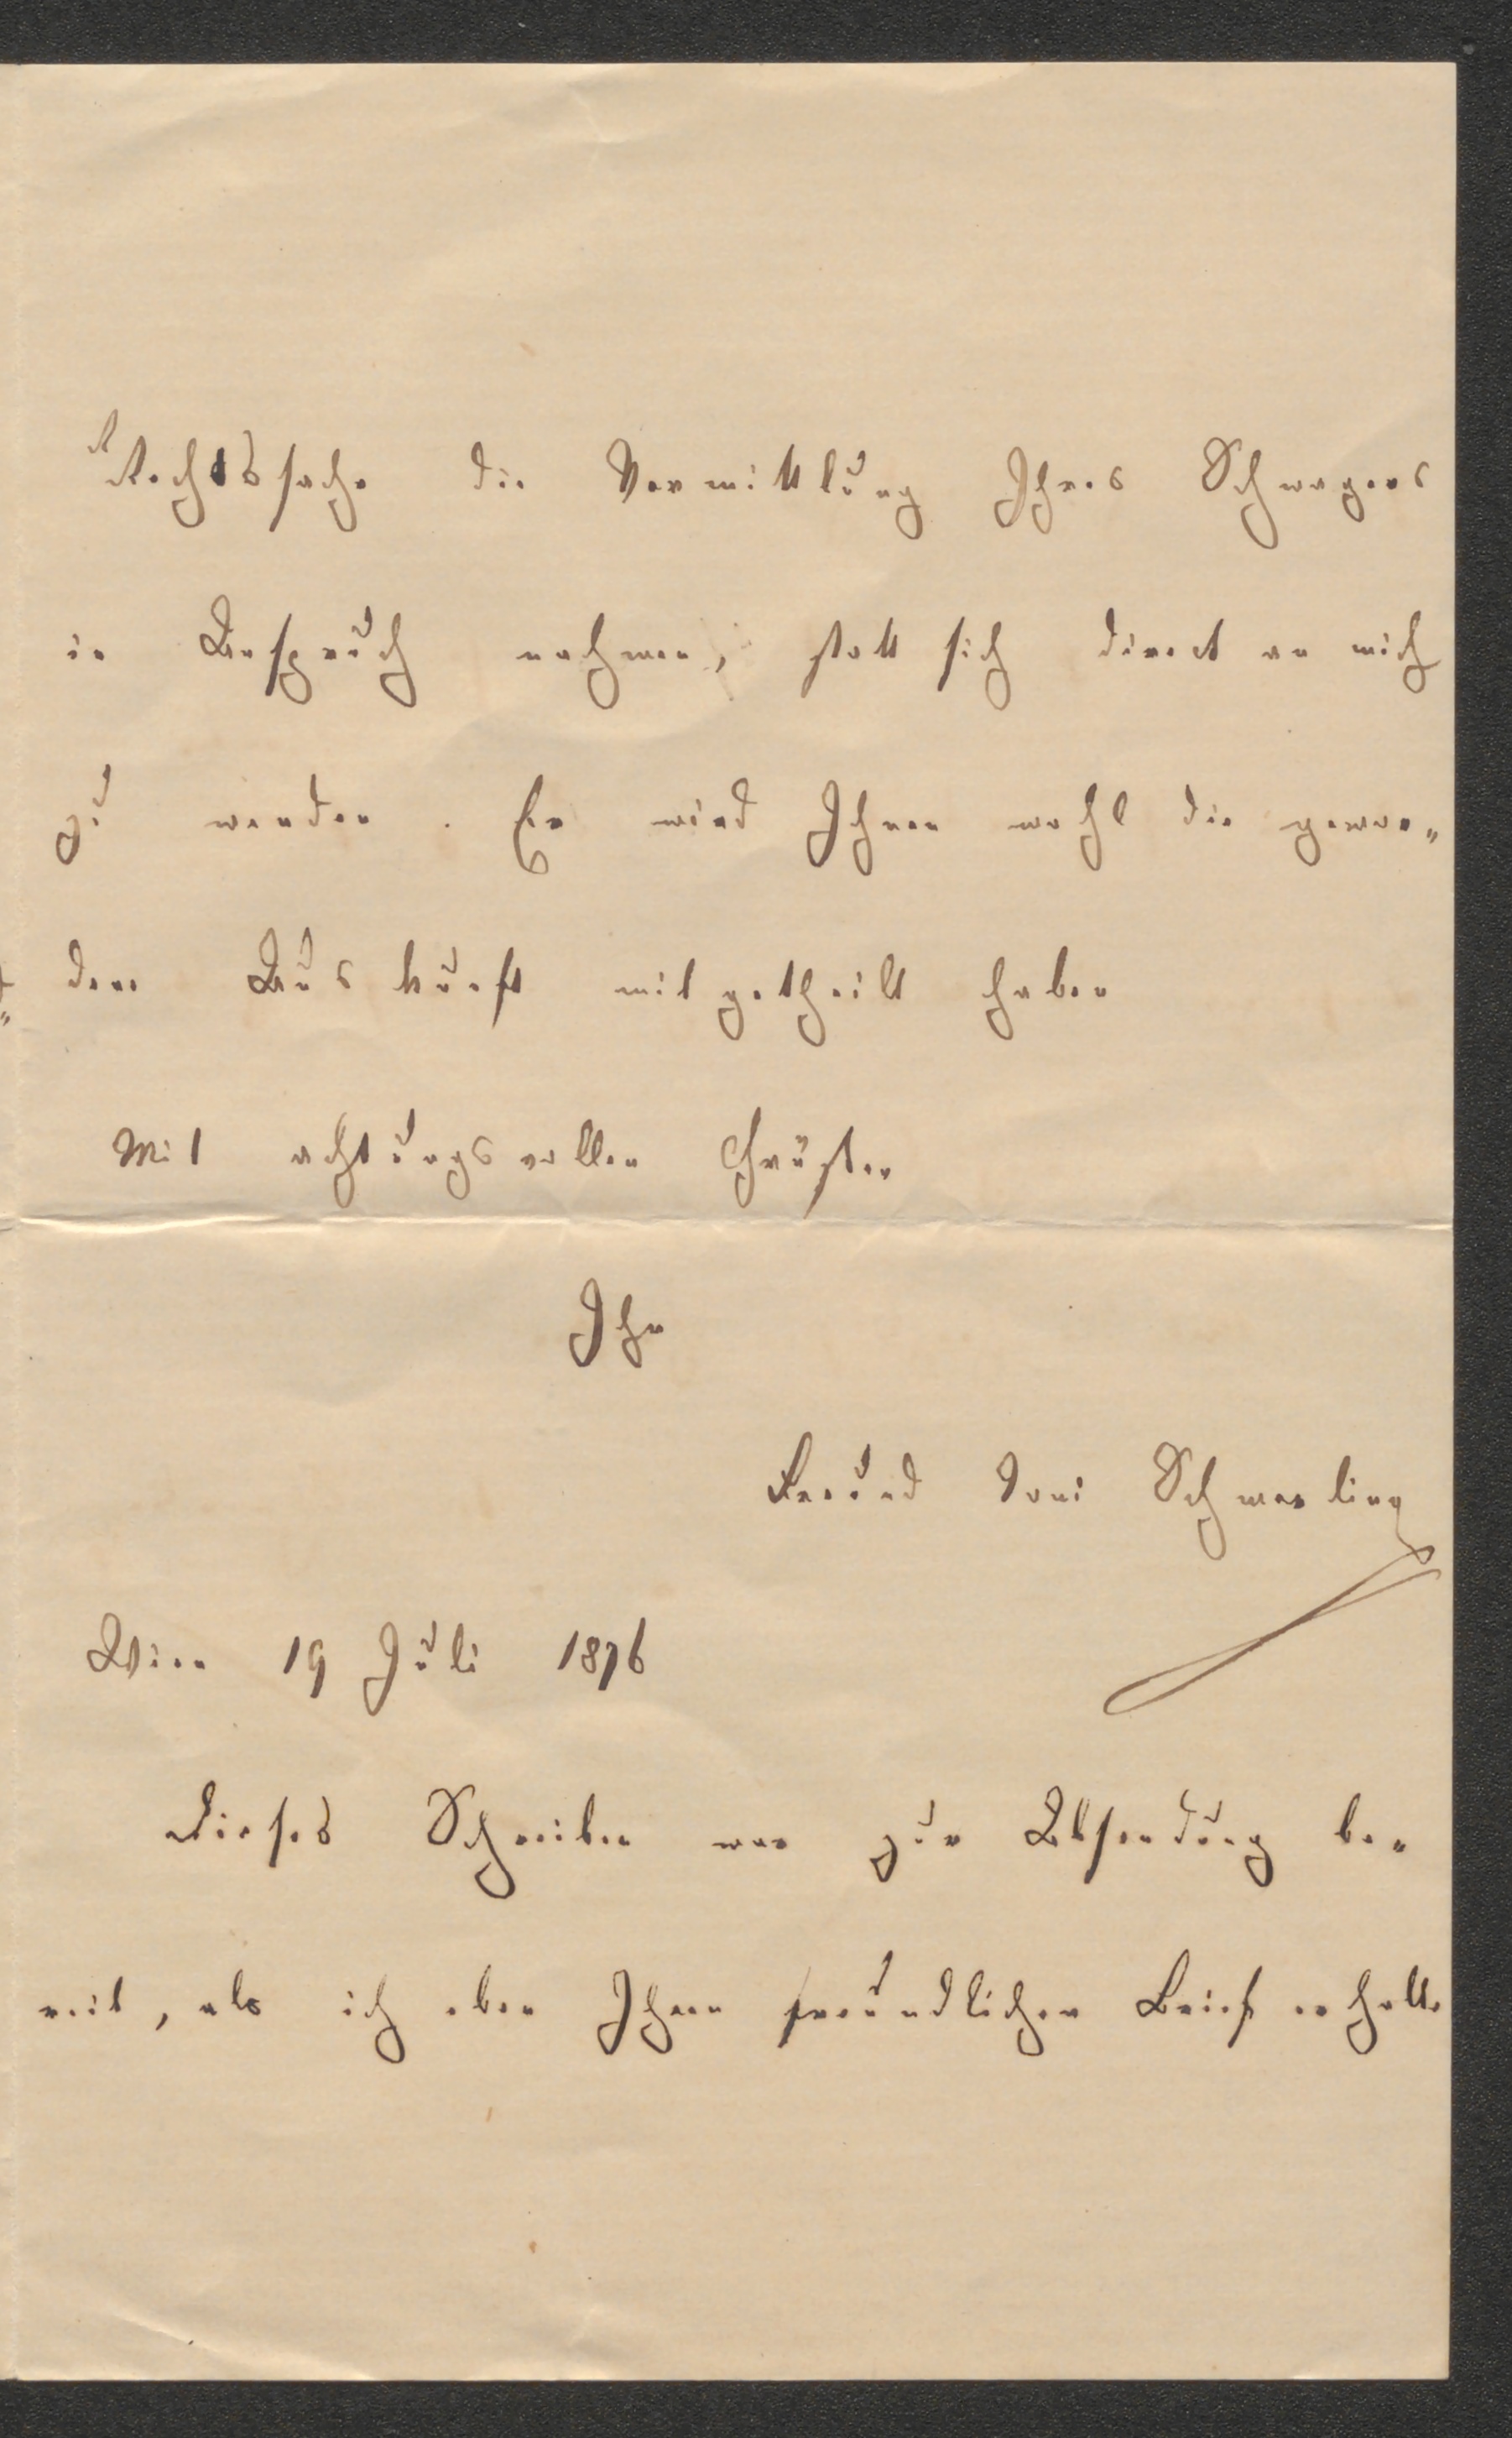 Rechtssache die Vermittlung Ihres Schwagers
in Anspruch nahmen, statt sich direct an mich
zu wenden. Er wird Ihnen wohl die gewün„
dene Auskunft mitgetheilt haben
Mit achtungsvollen Grüßen
Ihr
Freund Schmerling
Wien 19 Juli 1876
Dieses Schreiben war zur Absendung be„
reit, als ich eben Ihren freundlichen Brief erhalte